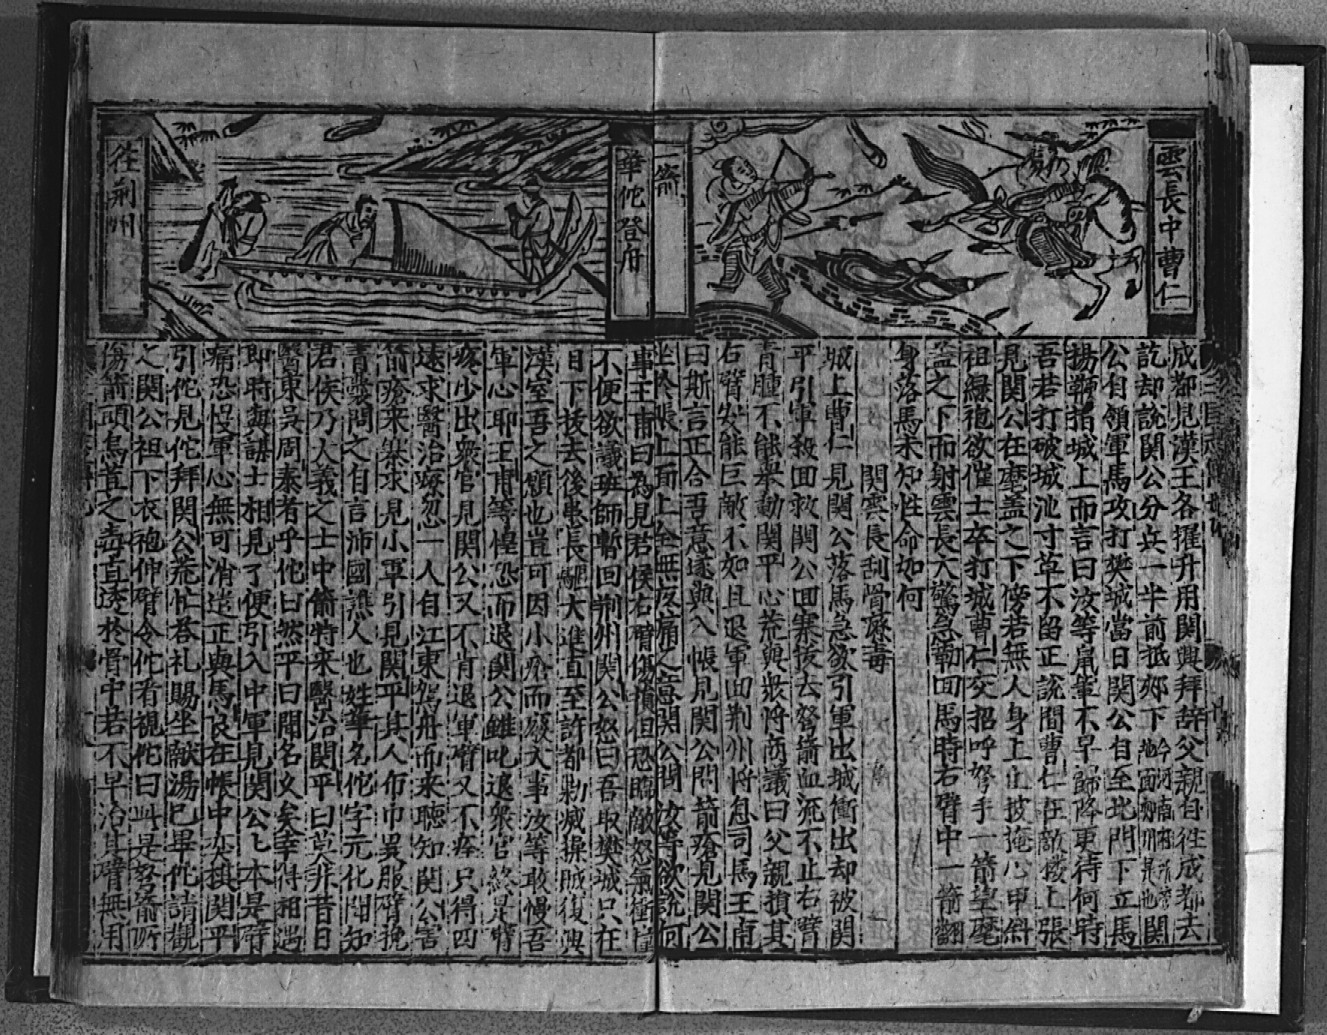 雲長中曹仁
箭
成都見漢王各擢升用関興拜辞父親自往成都去
訖却說関公分兵一半前抵郟下関
公自領軍馬攻打樊城當日関公自至北門下立馬
揚鞭指城上而言曰汝等鼠輩不早歸降更待何時
吾若打破城池寸草不留正說間曹仁在敵楼上張
見関公在麾盖之下傍若無人身上止披掩心甲斜
袒緑袍欲催士卒打城曹仁交招呼弩手一箭望麾
盖之下而射雲長大驚急勒回馬時右臂中一箭翻
身落馬未知性命如何
関雲長刮骨療毒
城上曹仁見関公落馬急欲引軍出城衝出却被関
平引軍殺回救関公回寨拔去弩箭血流不止右臂
青腫不能舉動関平心荒與眾將商議曰父親損其
右臂安能巨敵不如且退軍回荆州將息司馬王甫
曰斯言正合吾意遂與入帳見関公問箭瘡見関公
坐於帳上面上全無疼痛之意関公問汝等欲說何
華佗登舟
往荆州
事王甫曰為見君侯右臂傷損但恐臨敵怒氣衝
不便欲議班師暫回荆州関公怒曰吾取樊城只在
目下拔去後患長驅大進直至許都剿滅操賊復興
漢室吾之願也豈可因小瘡而廢大事汝等敢慢吾
軍心耶王甫等惶恐而退関公雖叱退衆官終是臂
疼少出衆官見関公又不肯退軍臂又不痊只得四
遠求醫治療忽一人自江東駕舟而來聴知関公害
箭瘡來寨求見小軍引見関平其人布巾異服臂挽
青囊問之自言沛國譙人也姓華名佗字元化因知
君侯乃大義之士中箭特來醫治関平曰莫非昔日
醫東吳周泰者乎佗曰然平曰聞名久矣幸得相遇
即時與謀士相見了便引入中軍見関公公本是臂
痛恐慢軍心無可消遣正與馬良在帳中奕棋関平
引佗見佗拜関公荒忙答礼賜坐献湯已畢佗請觀
之関公袒下衣袍伸臂令佗看視佗曰此是弩箭所
傷箭頭烏頭之毒直透於骨中若不早治其臂無用